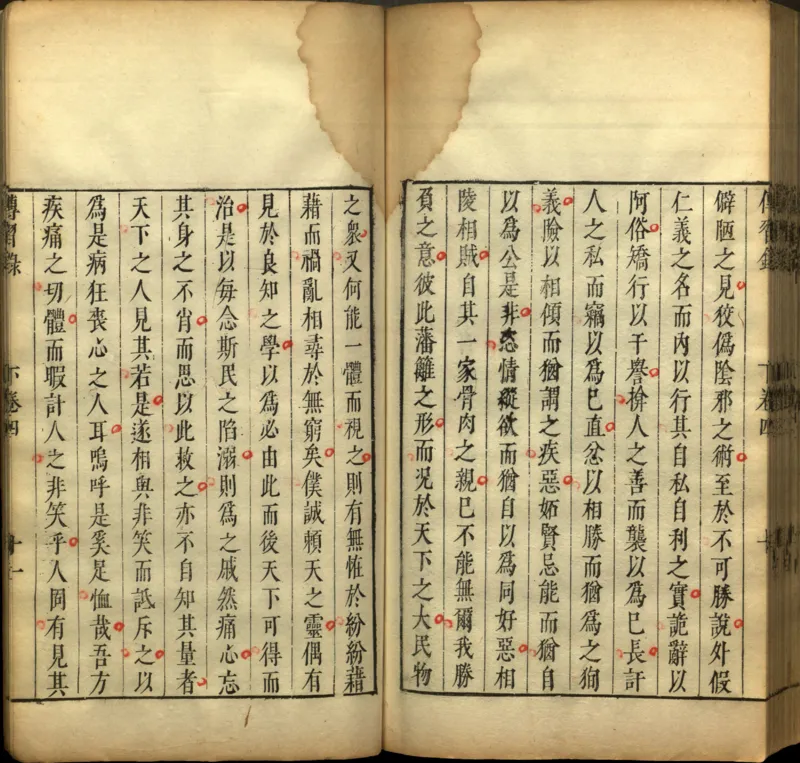 僻陋之見狡僞陰邪之術至於不可勝說外假
仁義之名而內以行其自私自利之實詭辭以
阿俗矯行以干譽揜人之善而襲以爲已長訐
人之私而竊以爲已直忿以相勝而猶爲之狥
義險以相傾而猶謂之疾惡妬賢忌能而猶自
以爲公是非恣情縱欲而猶自以爲同好惡相
陵相賊自其一家骨肉之親已不能無爾我勝
負之意彼此藩籬之形而况於天下之大民物
之衆又何能一體而視之則有無恠於紛紛藉
藉而禍亂相尋於無窮矣僕誠賴天之靈偶有
見於良知之學以爲必由此而後天下可得而
治是以每念斯民之陷溺則爲之戚然痛心忘
其身之不肖而思以此救之亦不自知其量者
天下之人見其若是遂相與非笑而詆斥之以
爲是病狂喪心之人耳嗚呼是奚足恤哉吾方
疾痛之切體而暇計人之非笑乎人固有見其
傳習錄 下卷四 十一